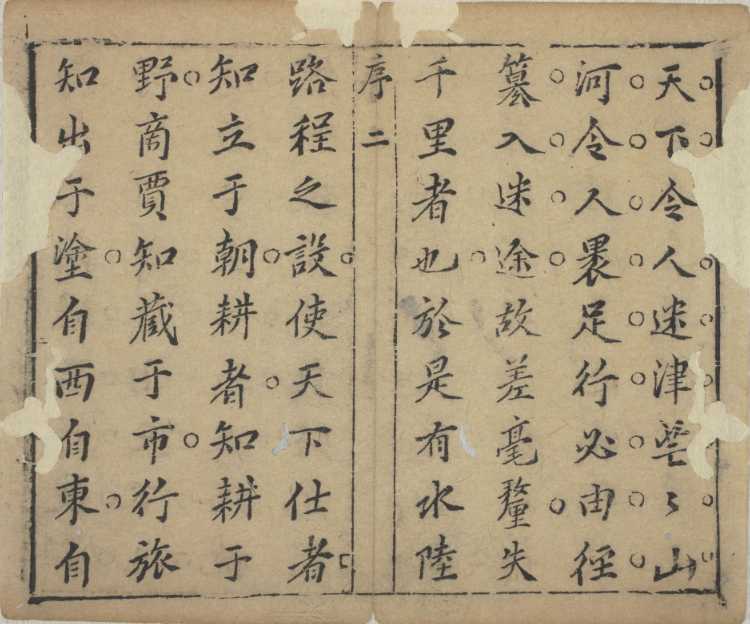 天下令人迷津芒〻山
河令人裹足行必由徑
篡入迷途故差毫釐失
千里者也於是有水陸
序 二
路程之設使天下仕者
知立于朝耕者知耕于
野商賈知藏于市行旅
知出于塗自西自東自